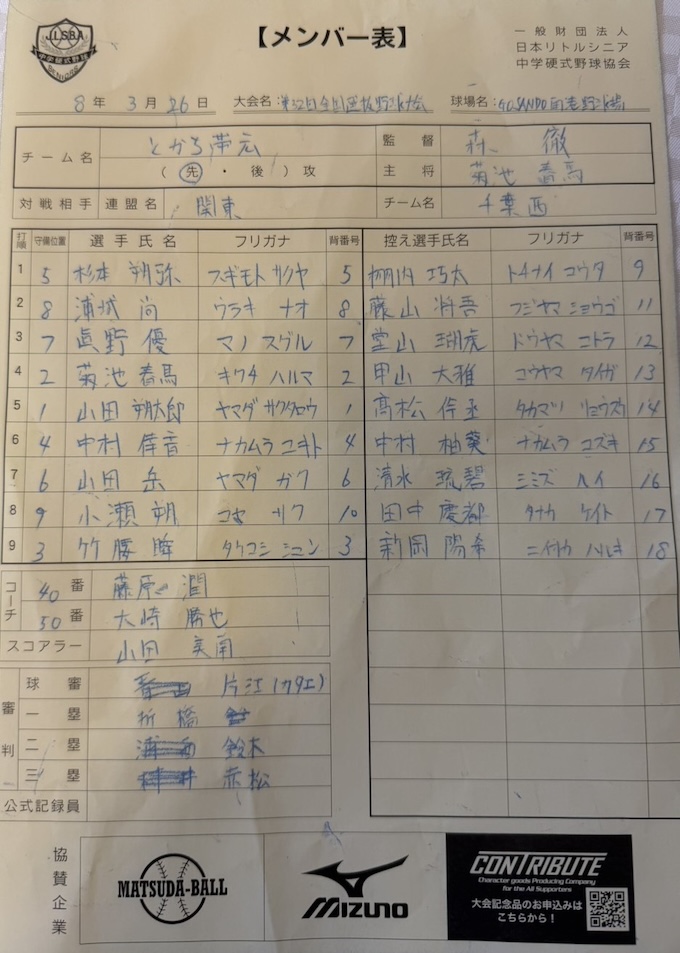 J.L.S.B.A
中学硬式野球
【メンバー表】
一般財団法人
日本リトルシニア
中学硬式野球協会
8年 3月 26日 大会名: 第32回全国選抜野球大会 球場名: GOSANDO南港野球場
チーム名 とかち帯広 監督 森 徹
(先・後)攻 主将 菊池 春馬
対戦相手 連盟名 関東 チーム名 千葉西
打順 守備位置 選手氏名 フリガナ 背番号 控え選手氏名 フリガナ 背番号
1 5 杉本 朔弥 スギモト サクヤ 5 棚内 巧太 トチナイ コウタ 9
2 8 浦城 尚 ウラキ ナオ 8 藤山 将吾 フジヤマ ショウゴ 11
3 7 眞野 優 マノ スグル 7 堂山 瑚虎 ドウヤマ コトラ 12
4 2 菊池 春馬 キクチ ハルマ 2 甲山 大雅 コウヤマ タイガ 13
5 1 山田 朔太郎 ヤマダ サクタロウ 1 髙松 伶丞 タカマツ リョウスケ 14
6 4 中村 倖音 ナカムラ ユキト 4 中村 柚葵 ナカムラ ユズキ 15
7 6 山田 岳 ヤマダ ガク 6 清水 琉碧 シミズ ルイ 16
8 9 小瀬 朔 コセ サク 10 田中 慶都 タナカ ケイト 17
9 3 竹腰 瞬 タケコシ シュン 3 新岡 陽希 ニイオカ ハルキ 18
コーチ 40番 藤原 潤
50番 大崎 勝也
スコアラー 山田 美南
審判
球審 片江(カタエ)
一塁 折橋
二塁 鈴木
三塁 赤松
公式記録員
協賛企業
MATSUDA-BALL
MIZUNO
CONTRIBUTE
Character goods Producing Company
for the All Supporters
大会記念品のお申込みは
こちらから!